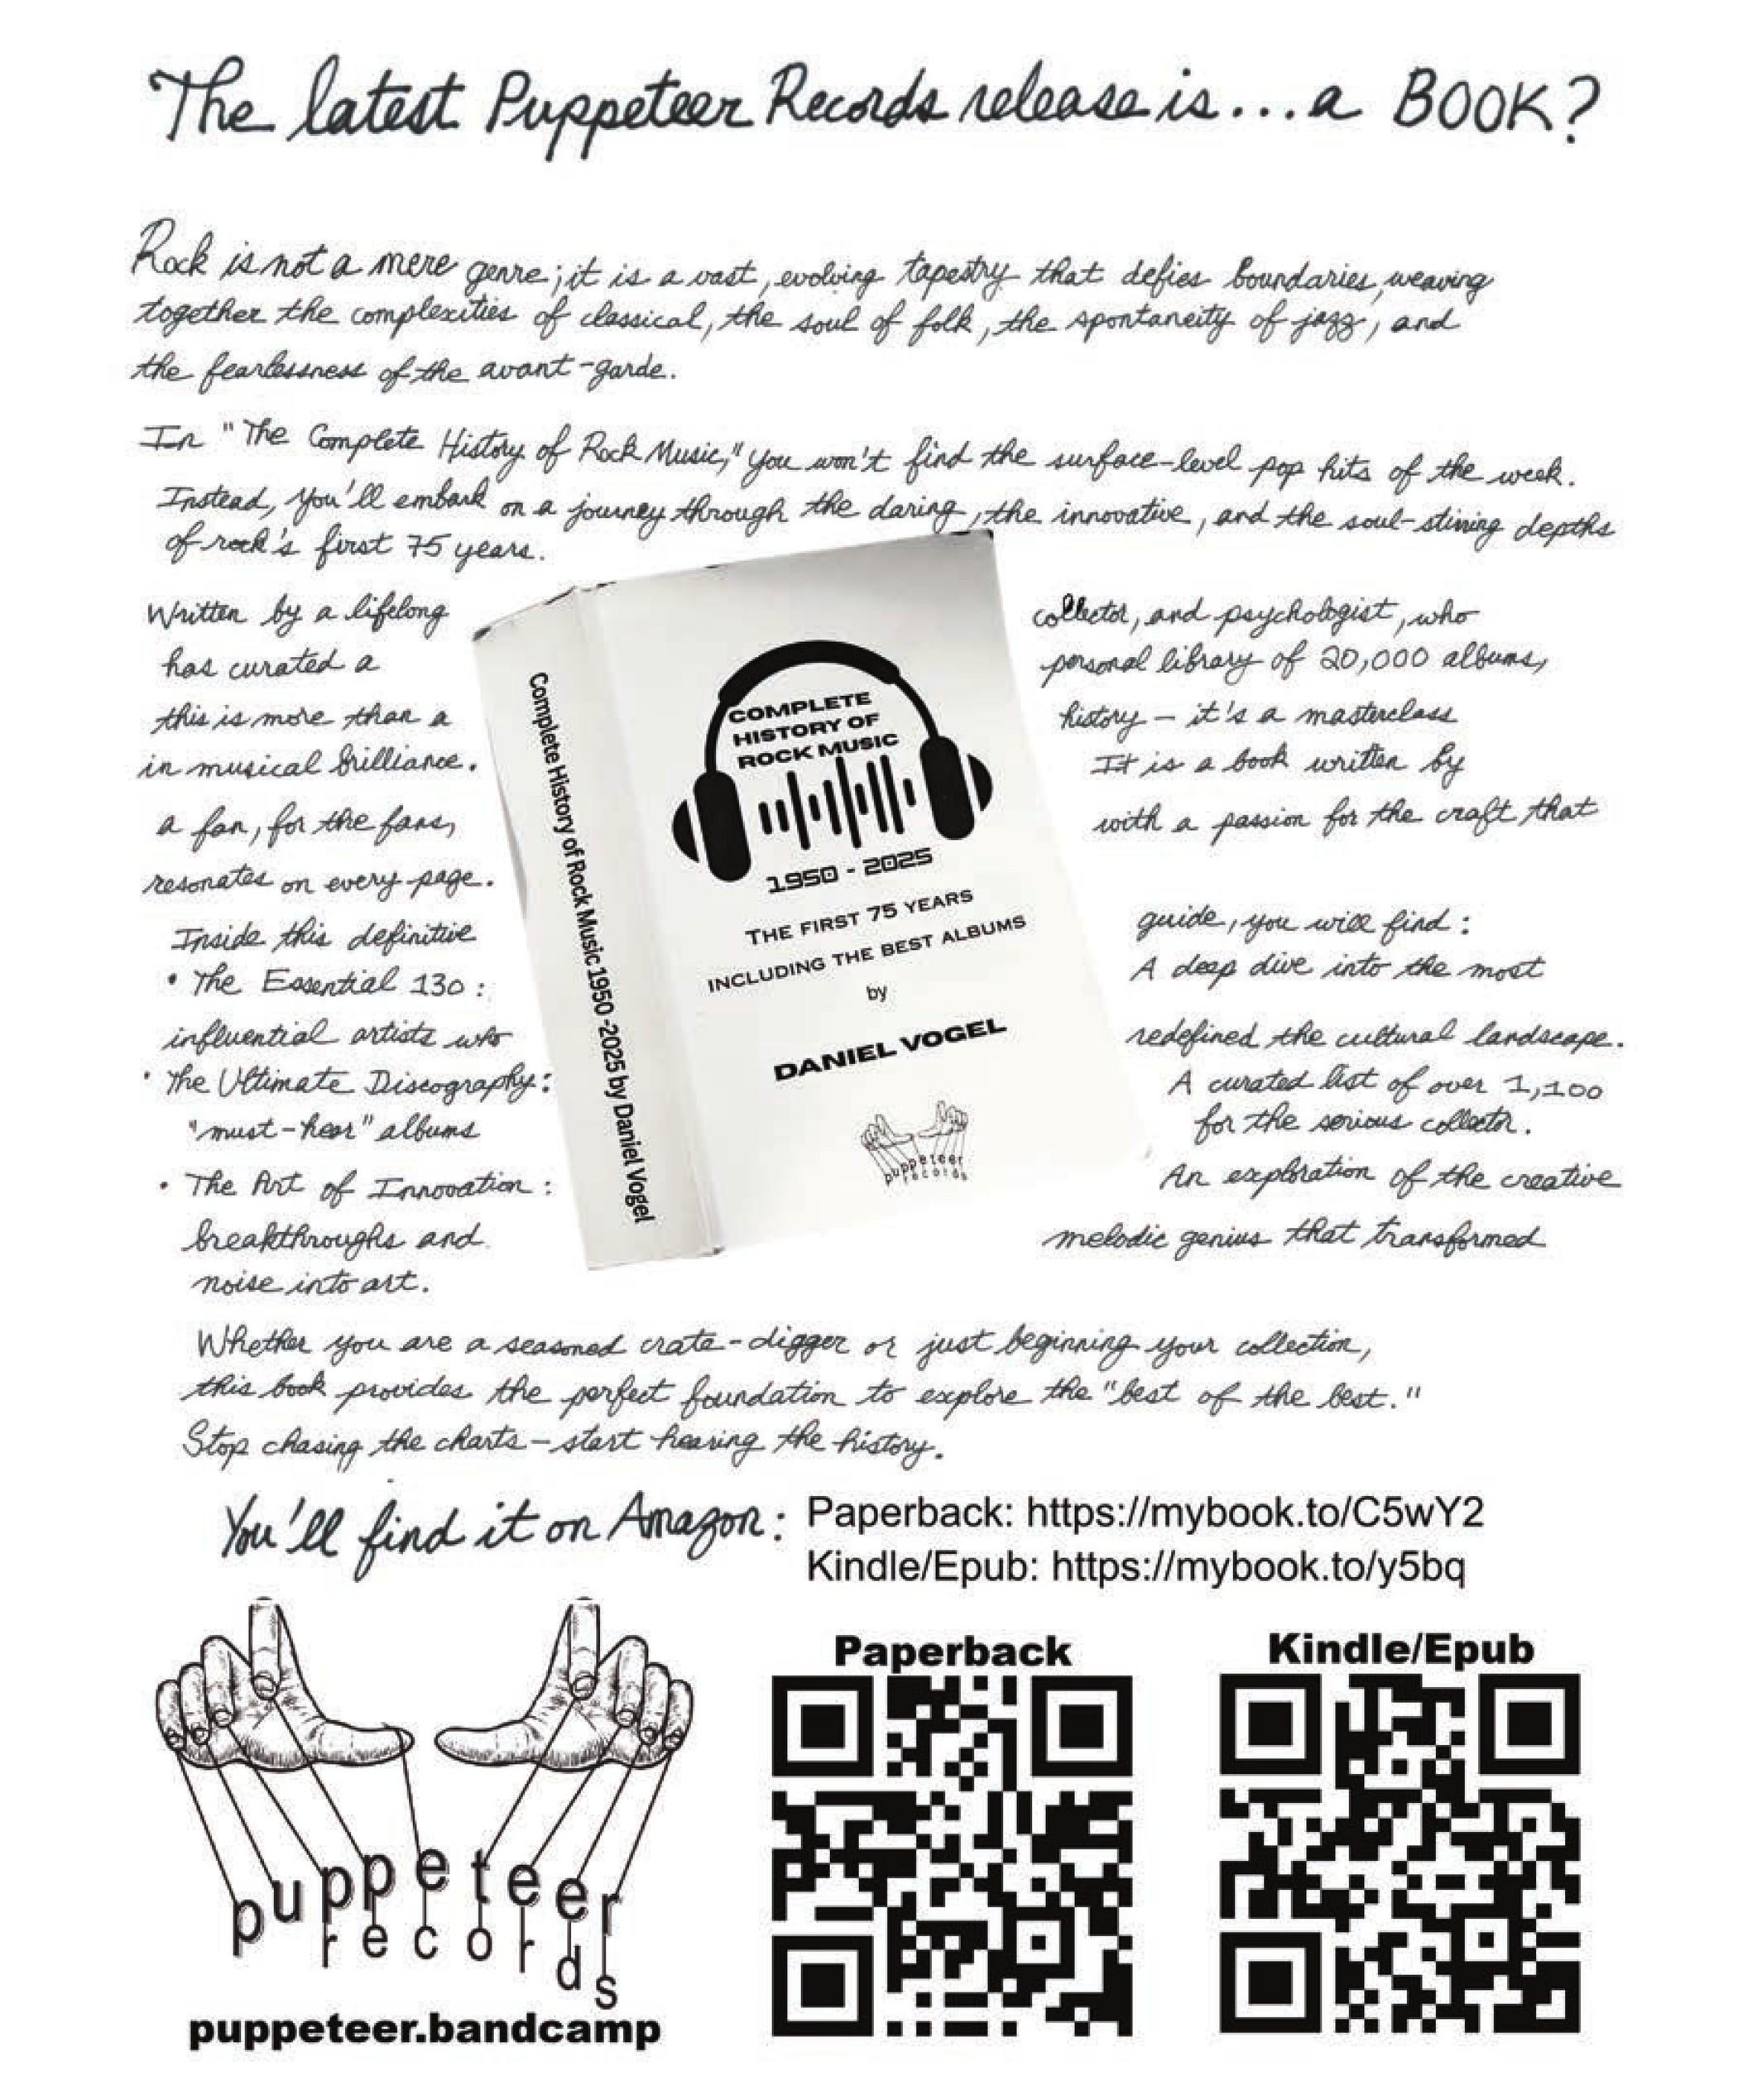 The latest Puppeteer Records release is...a BOOK?
Rock is not a mere genre; it is a vast, evolving tapestry that defies boundaries, weaving
together the complexities of classical, the soul of folk, the spontaneity of jazz, and
the fearlessness of the avant-garde.
In "The Complete History of Rock Music," you won't find the surface-level pop hits of the week.
Instead, you'll embark on a journey through the daring, the innovative, and the soul-stirring depths
of rock's first 75 years.
Written by a lifelong collector, and psychologist, who
has curated a personal library of 20,000 albums,
this is more than a history - it's a masterclass
in musical brilliance. It is a book written by
a fan, for the fans, with a passion for the craft that
resonates on every page.
Inside this definitive guide, you will find:
• The Essential 130: A deep dive into the most
influential artists who redefined the cultural landscape.
• The Ultimate Discography: A curated list of over 1,100
"must-hear" albums for the serious collector.
• The Art of Innovation: An exploration of the creative
breakthroughs and melodic genius that transformed
noise into art.
Complete History of Rock Music 1950-2025 by Daniel Vogel
COMPLETE
HISTORY OF
ROCK MUSIC
1950 - 2025
THE FIRST 75 YEARS
INCLUDING THE BEST ALBUMS
by
DANIEL VOGEL
puppeteer
records
Whether you are a seasoned crate-digger or just beginning your collection,
this book provides the perfect foundation to explore the "best of the best."
Stop chasing the charts - start hearing the history.
You'll find it on Amazon: Paperback: https://mybook.to/C5wY2
Kindle/Epub: https://mybook.to/y5bq
puppeteer
records
puppeteer.bandcamp
Paperback
Kindle/Epub